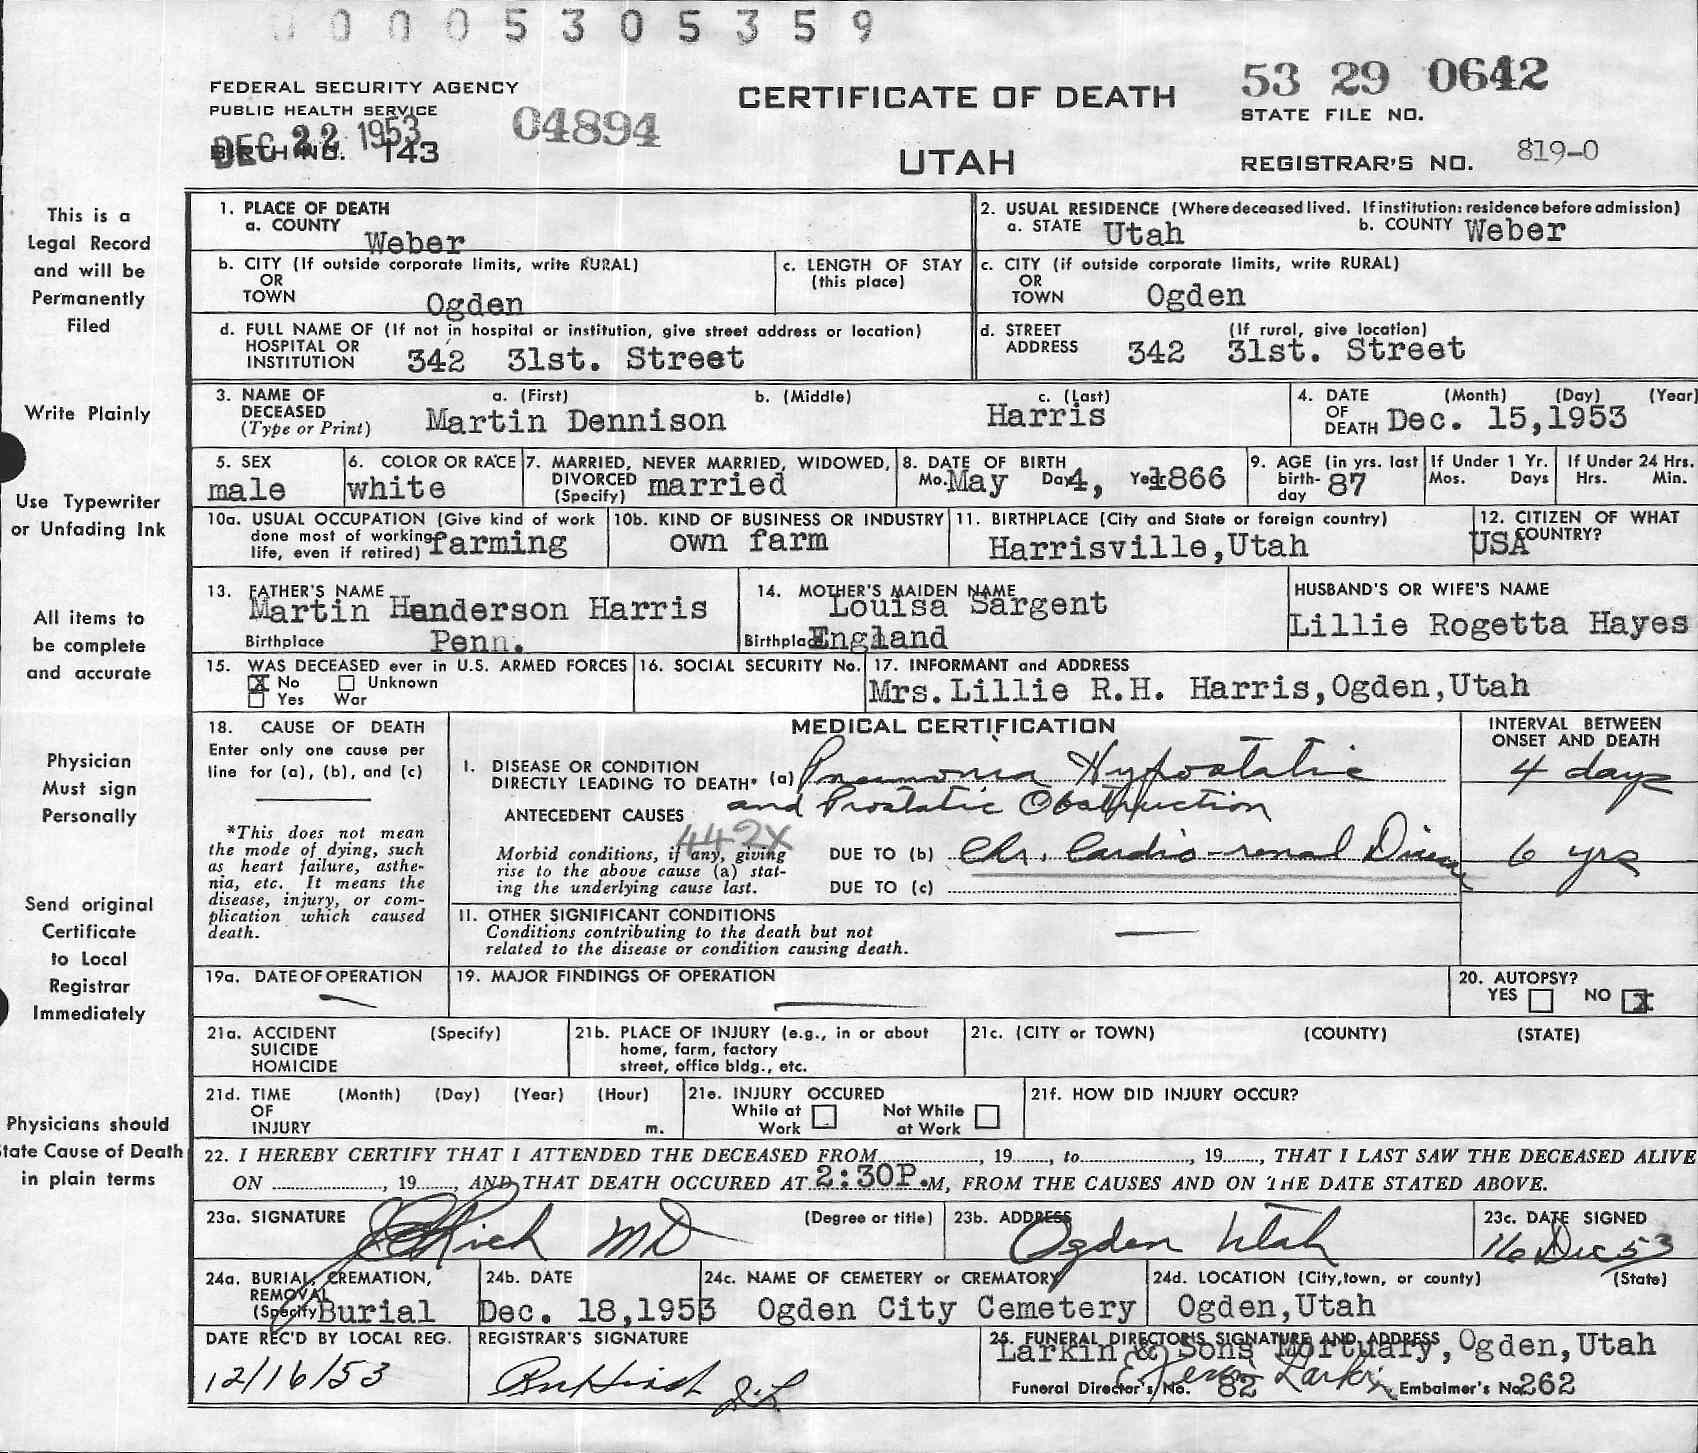 0 0 0 0 5 3 0 5 3 5 9
FEDERAL SECURITY AGENCY
PUBLIC HEALTH SERVICE
DEC 22 1953
BIRTH NO. 143
04894
CERTIFICATE OF DEATH
UTAH
53 29 0642
STATE FILE NO.
REGISTRAR'S NO. 819-0
This is a
Legal Record
and will be
Permanently
Filed
Write Plainly
Use Typewriter
or Unfading Ink
All items to
be complete
and accurate
Physician
Must sign
Personally
Send original
Certificate
to Local
Registrar
Immediately
Physicians should
tate Cause of Death
in plain terms
1. PLACE OF DEATH
a. COUNTY Weber
2. USUAL RESIDENCE (Where deceased lived. If institution: residence before admission)
a. STATE Utah b. COUNTY Weber
b. CITY (If outside corporate limits, write RURAL)
OR
TOWN Ogden
c. LENGTH OF STAY
(this place)
c. CITY (if outside corporate limits, write RURAL)
OR
TOWN Ogden
d. FULL NAME OF (If not in hospital or institution, give street address or location)
HOSPITAL OR
INSTITUTION 342 31st. Street
d. STREET (If rural, give location)
ADDRESS 342 31st. Street
3. NAME OF a. (First) b. (Middle) c. (Last)
DECEASED
(Type or Print) Martin Dennison Harris
4. DATE (Month) (Day) (Year)
OF
DEATH Dec. 15,1953
5. SEX
male
6. COLOR OR RACE
white
7. MARRIED, NEVER MARRIED, WIDOWED,
DIVORCED
(Specify) married
8. DATE OF BIRTH
Mo. May Day 4, Year 1866
9. AGE (in yrs. last
birth-
day 87
If Under 1 Yr.
Mos. Days
If Under 24 Hrs.
Hrs. Min.
10a. USUAL OCCUPATION (Give kind of work
done most of working
life, even if retired) farming
10b. KIND OF BUSINESS OR INDUSTRY
own farm
11. BIRTHPLACE (City and State or foreign country)
Harrisville,Utah
12. CITIZEN OF WHAT
COUNTRY?
USA
13. FATHER'S NAME
Martin Henderson Harris
Birthplace Penn.
14. MOTHER'S MAIDEN NAME
Louisa Sargent
Birthplace England
HUSBAND'S OR WIFE'S NAME
Lillie Rogetta Hayes
15. WAS DECEASED ever in U.S. ARMED FORCES
X No Unknown
Yes War
16. SOCIAL SECURITY No.
17. INFORMANT and ADDRESS
Mrs.Lillie R.H. Harris,Ogden,Utah
18. CAUSE OF DEATH
Enter only one cause per
line for (a), (b), and (c)
*This does not mean
the mode of dying, such
as heart failure, asthe-
nia, etc. It means the
disease, injury, or com-
plication which caused
death.
MEDICAL CERTIFICATION
INTERVAL BETWEEN
ONSET AND DEATH
I. DISEASE OR CONDITION
DIRECTLY LEADING TO DEATH* (a) Pneumonia Hypostatic 4 days
and Prostatic Obstruction
ANTECEDENT CAUSES
442X
Morbid conditions, if any, giving
rise to the above cause (a) stat-
ing the underlying cause last.
DUE TO (b) Chr. Cardio-renal Disease 6 yrs
DUE TO (c)
II. OTHER SIGNIFICANT CONDITIONS
Conditions contributing to the death but not
related to the disease or condition causing death.
19a. DATE OF OPERATION
19. MAJOR FINDINGS OF OPERATION
20. AUTOPSY?
YES NO X
21a. ACCIDENT (Specify)
SUICIDE
HOMICIDE
21b. PLACE OF INJURY (e.g., in or about
home, farm, factory
street, office bldg., etc.
21c. (CITY or TOWN) (COUNTY) (STATE)
21d. TIME (Month) (Day) (Year) (Hour)
OF
INJURY m.
21e. INJURY OCCURED
While at Work
Not While at Work
21f. HOW DID INJURY OCCUR?
22. I HEREBY CERTIFY THAT I ATTENDED THE DECEASED FROM, 19, to, 19, THAT I LAST SAW THE DECEASED ALIVE
ON, 19, AND THAT DEATH OCCURED AT 2:30P.M, FROM THE CAUSES AND ON THE DATE STATED ABOVE.
23a. SIGNATURE (Degree or title)
Rich MD
23b. ADDRESS
Ogden Utah
23c. DATE SIGNED
16 Dec 53
24a. BURIAL, CREMATION,
REMOVAL
(Specify) Burial
24b. DATE
Dec. 18,1953
24c. NAME OF CEMETERY or CREMATORY
Ogden City Cemetery
24d. LOCATION (City,town, or county) (State)
Ogden,Utah
DATE REC'D BY LOCAL REG.
12/16/53
REGISTRAR'S SIGNATURE
25. FUNERAL DIRECTOR'S SIGNATURE AND ADDRESS
Larkin & Sons Mortuary,Ogden,Utah
Larkin
Funeral Director's No. 82 Embalmer's No. 262